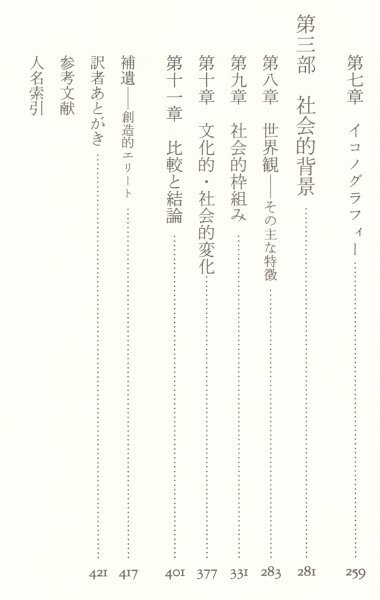 第七章　イコノグラフィー 259
第三部　社会的背景 281
第八章　世界観──その主な特徴 283
第九章　社会的枠組み 331
第十章　文化的・社会的変化 377
第十一章　比較と結論 401
補遺──創造的エリート 417
訳者あとがき 421
参考文献
人名索引